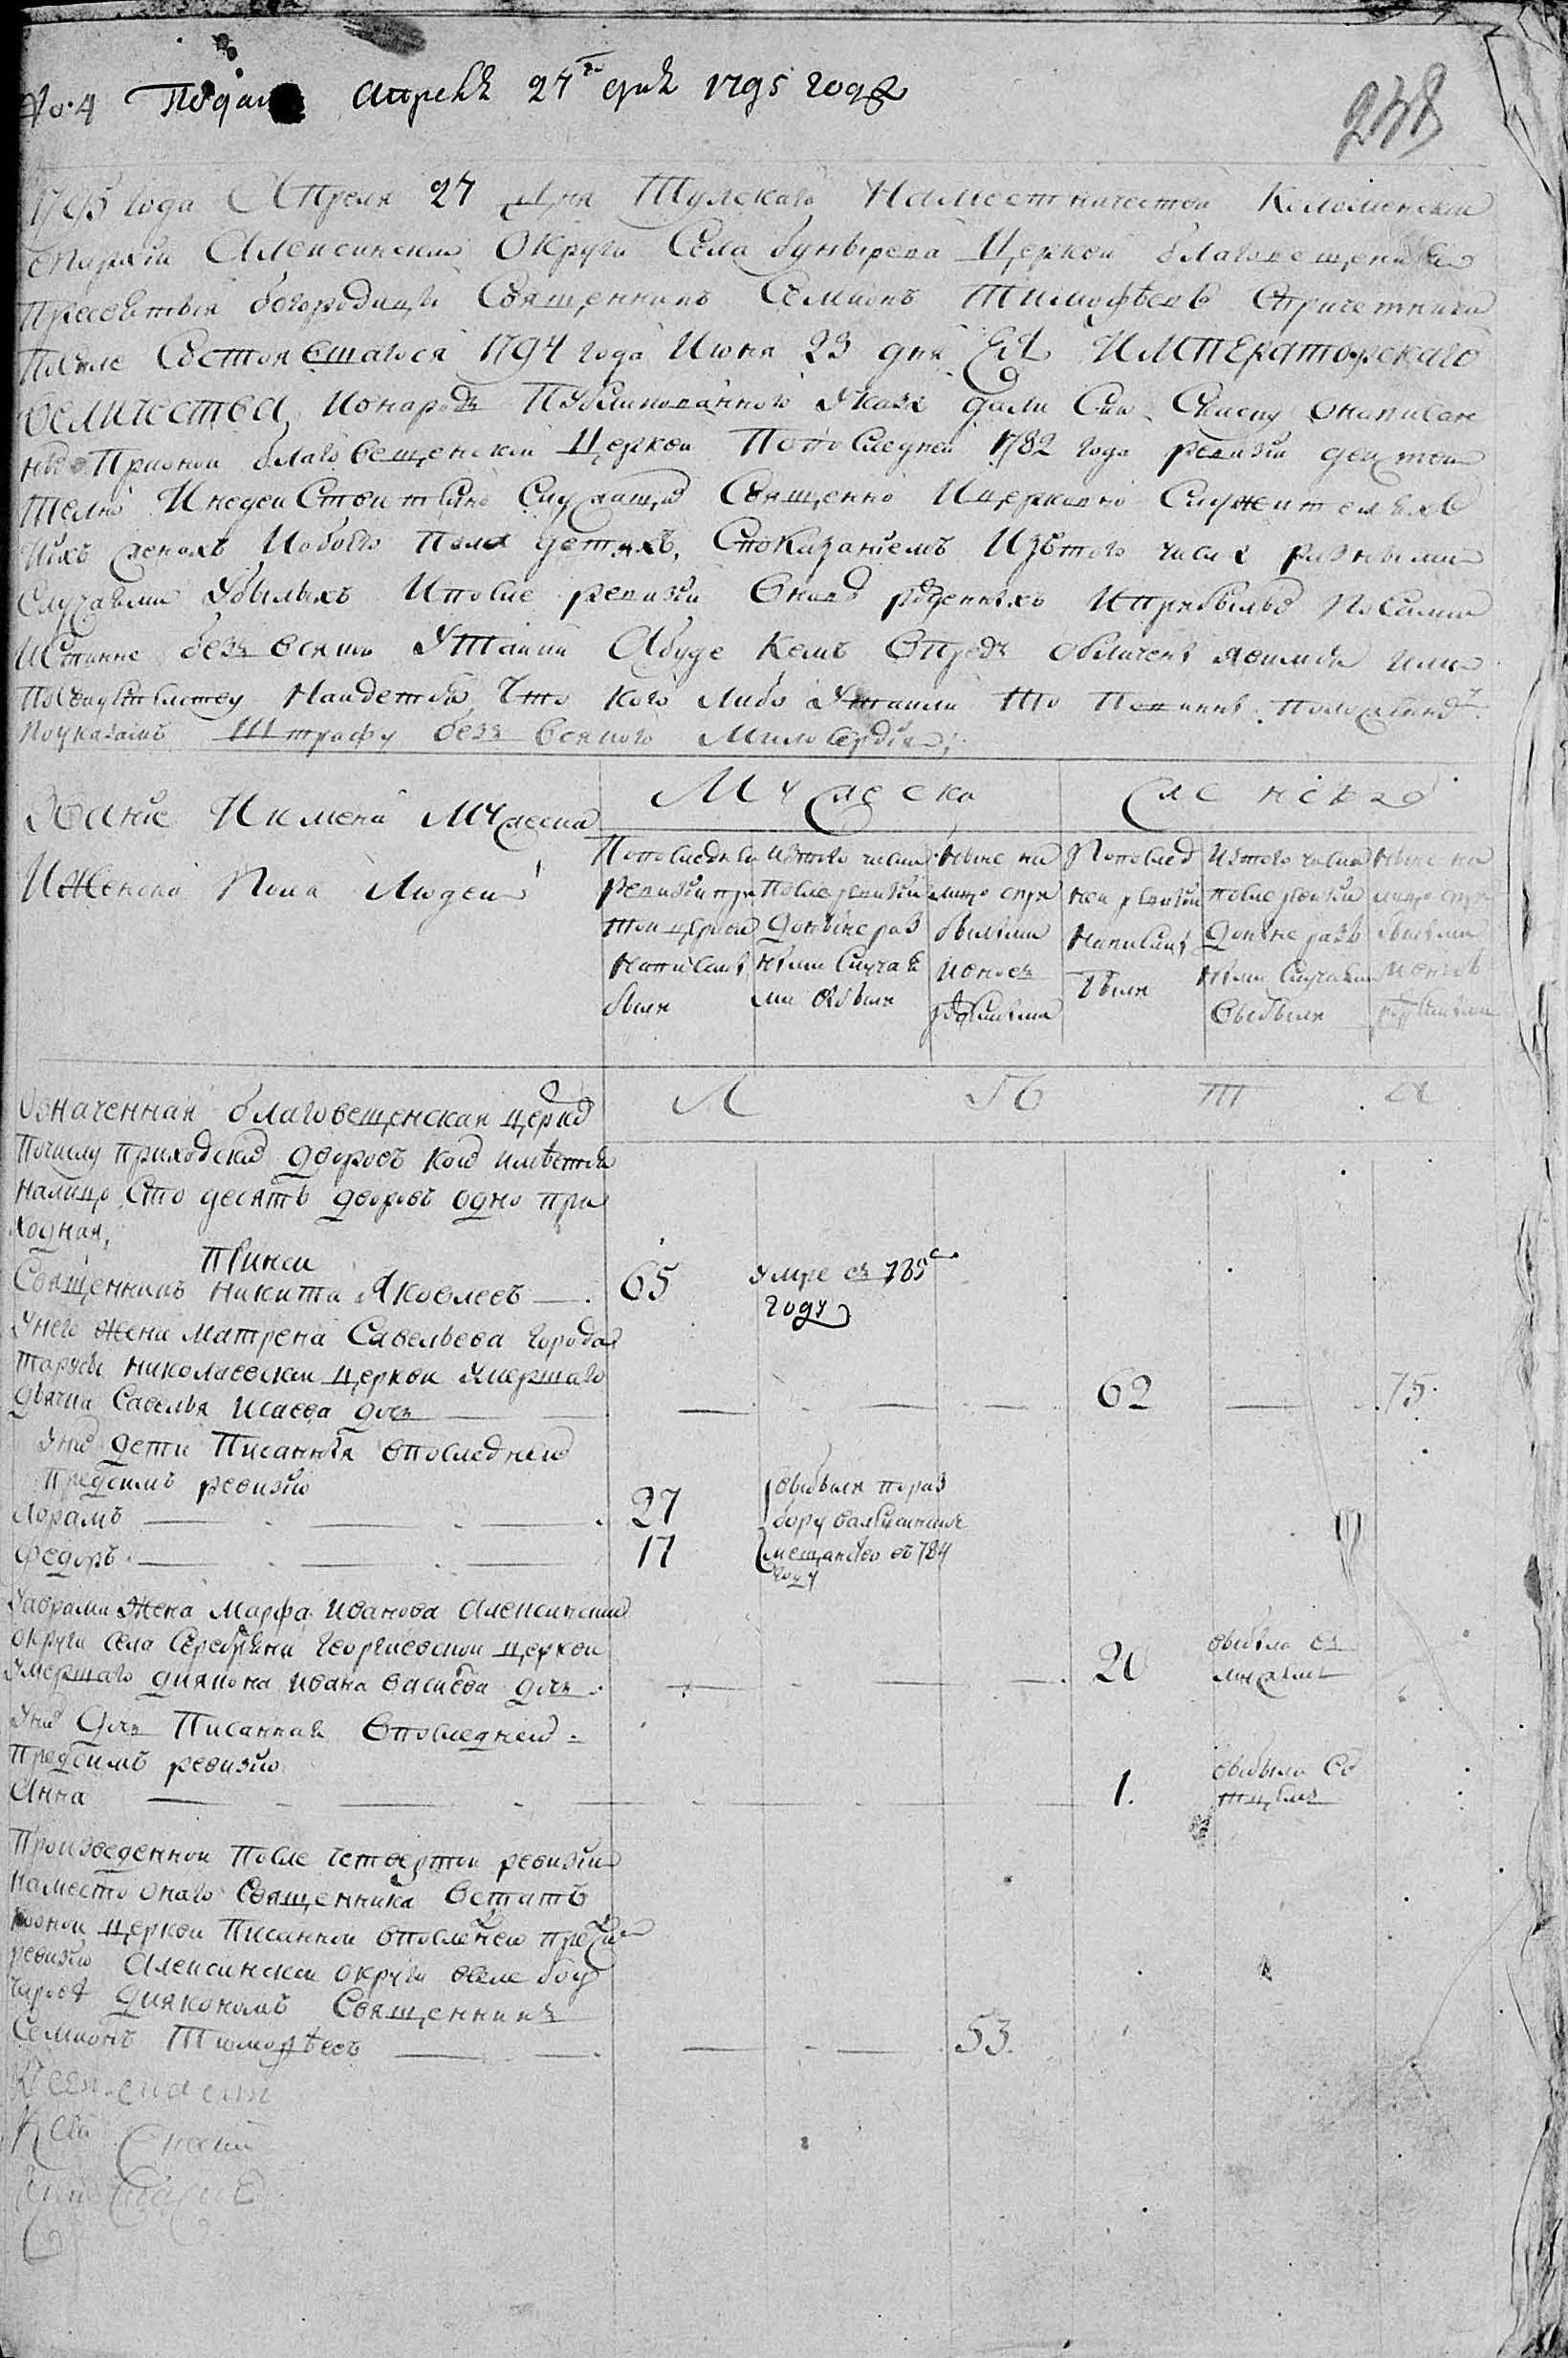 No. 4 Подана Апреля 27го дня 1795 года
238
1795 года Апреля 27 Дня Тулскаго Наместничества Коломенскои
епархии Алексинскои Округи Села бунырева Церкви благовещения
Пресвятыя богородицы Священникъ Семионъ Тимофеевъ Спричетники
После Состоявшагося 1794 года Июня 23 дня Ея ИМПЕРАТОРСКАГО
ВЕЛИЧЕСТВА, Публикованного Указа дали Сию Скаску онаписан
ныхъ Прионой благовещенской Церкви Попоследней 1782 года ревизии деистви
телно Инедеиствително Служащихъ Священно Ицерковно Служителяхъ
Ихъ женахъ Иобоего Пола детяхъ, Споказаниемъ Изтого числа разными
Случаями Убылыхъ Ипосле ревизии Вновь рожденныхъ Иприбылыхъ Посамои
Истинне безъ всякой Утаики Абуде кемъ Впредь обличены явимся или
Посвидетелству Наидется Что кого либо Утаили То Повинны положенному
Поуказамъ Штрафу безъ всякого Милосердия;
Звание Иимена Мужеска
ИЖенска Пола Людей
Мужеска
Женска
Попоследней ревизии при той церкви написаны были
Изтого числа после ревизии доныне разными случаями выбыли
Ныне на лицо сприбылыми ивновь рожденными
Попоследней ревизии написаны были
Изтого числа после ревизии доныне разными случаями выбыли
Ныне на лицо сприбылыми ивновь рожденными
Л ѣ т а
Означенная благовещенская церковь
Почислу приходскихъ дворовъ коихъ имеется
налицо Сто десять дворовъ одно при
ходная,
Принеи
Священникъ Никита Яковлевъ — 65 Умре въ 785м
году
Унего жена Матрена Савельева города
Тарусы Николаевской церкви Умершаго
дьячка Савелья Исаева дочь — 62 — 75.
Унихъ дети Писанныя впоследнею
Предсимъ ревизию
Аврамъ — 27 выбыли пораз
бору валексинское
Федоръ — 17 мещанство въ 784
году
Уаврама Жена Марфа Иванова Алексинскои
округи села Георгиевской церкви
Умершаго диакона Ивана Васильева дочь — 20 выбыла съ
мужемъ
Унихъ Дочь Писанная Впоследнею
Предсимъ ревизию
Анна — 1. выбыла Со
отцемъ
Произведенной После четвертой ревизии
наместо онаго Священника Встатъ
кооной церкви Писанной впоследнею предсимъ
ревизию Алексинскои округи вселе
диакономъ Священникъ
Семионъ Тимофеевъ — 53.